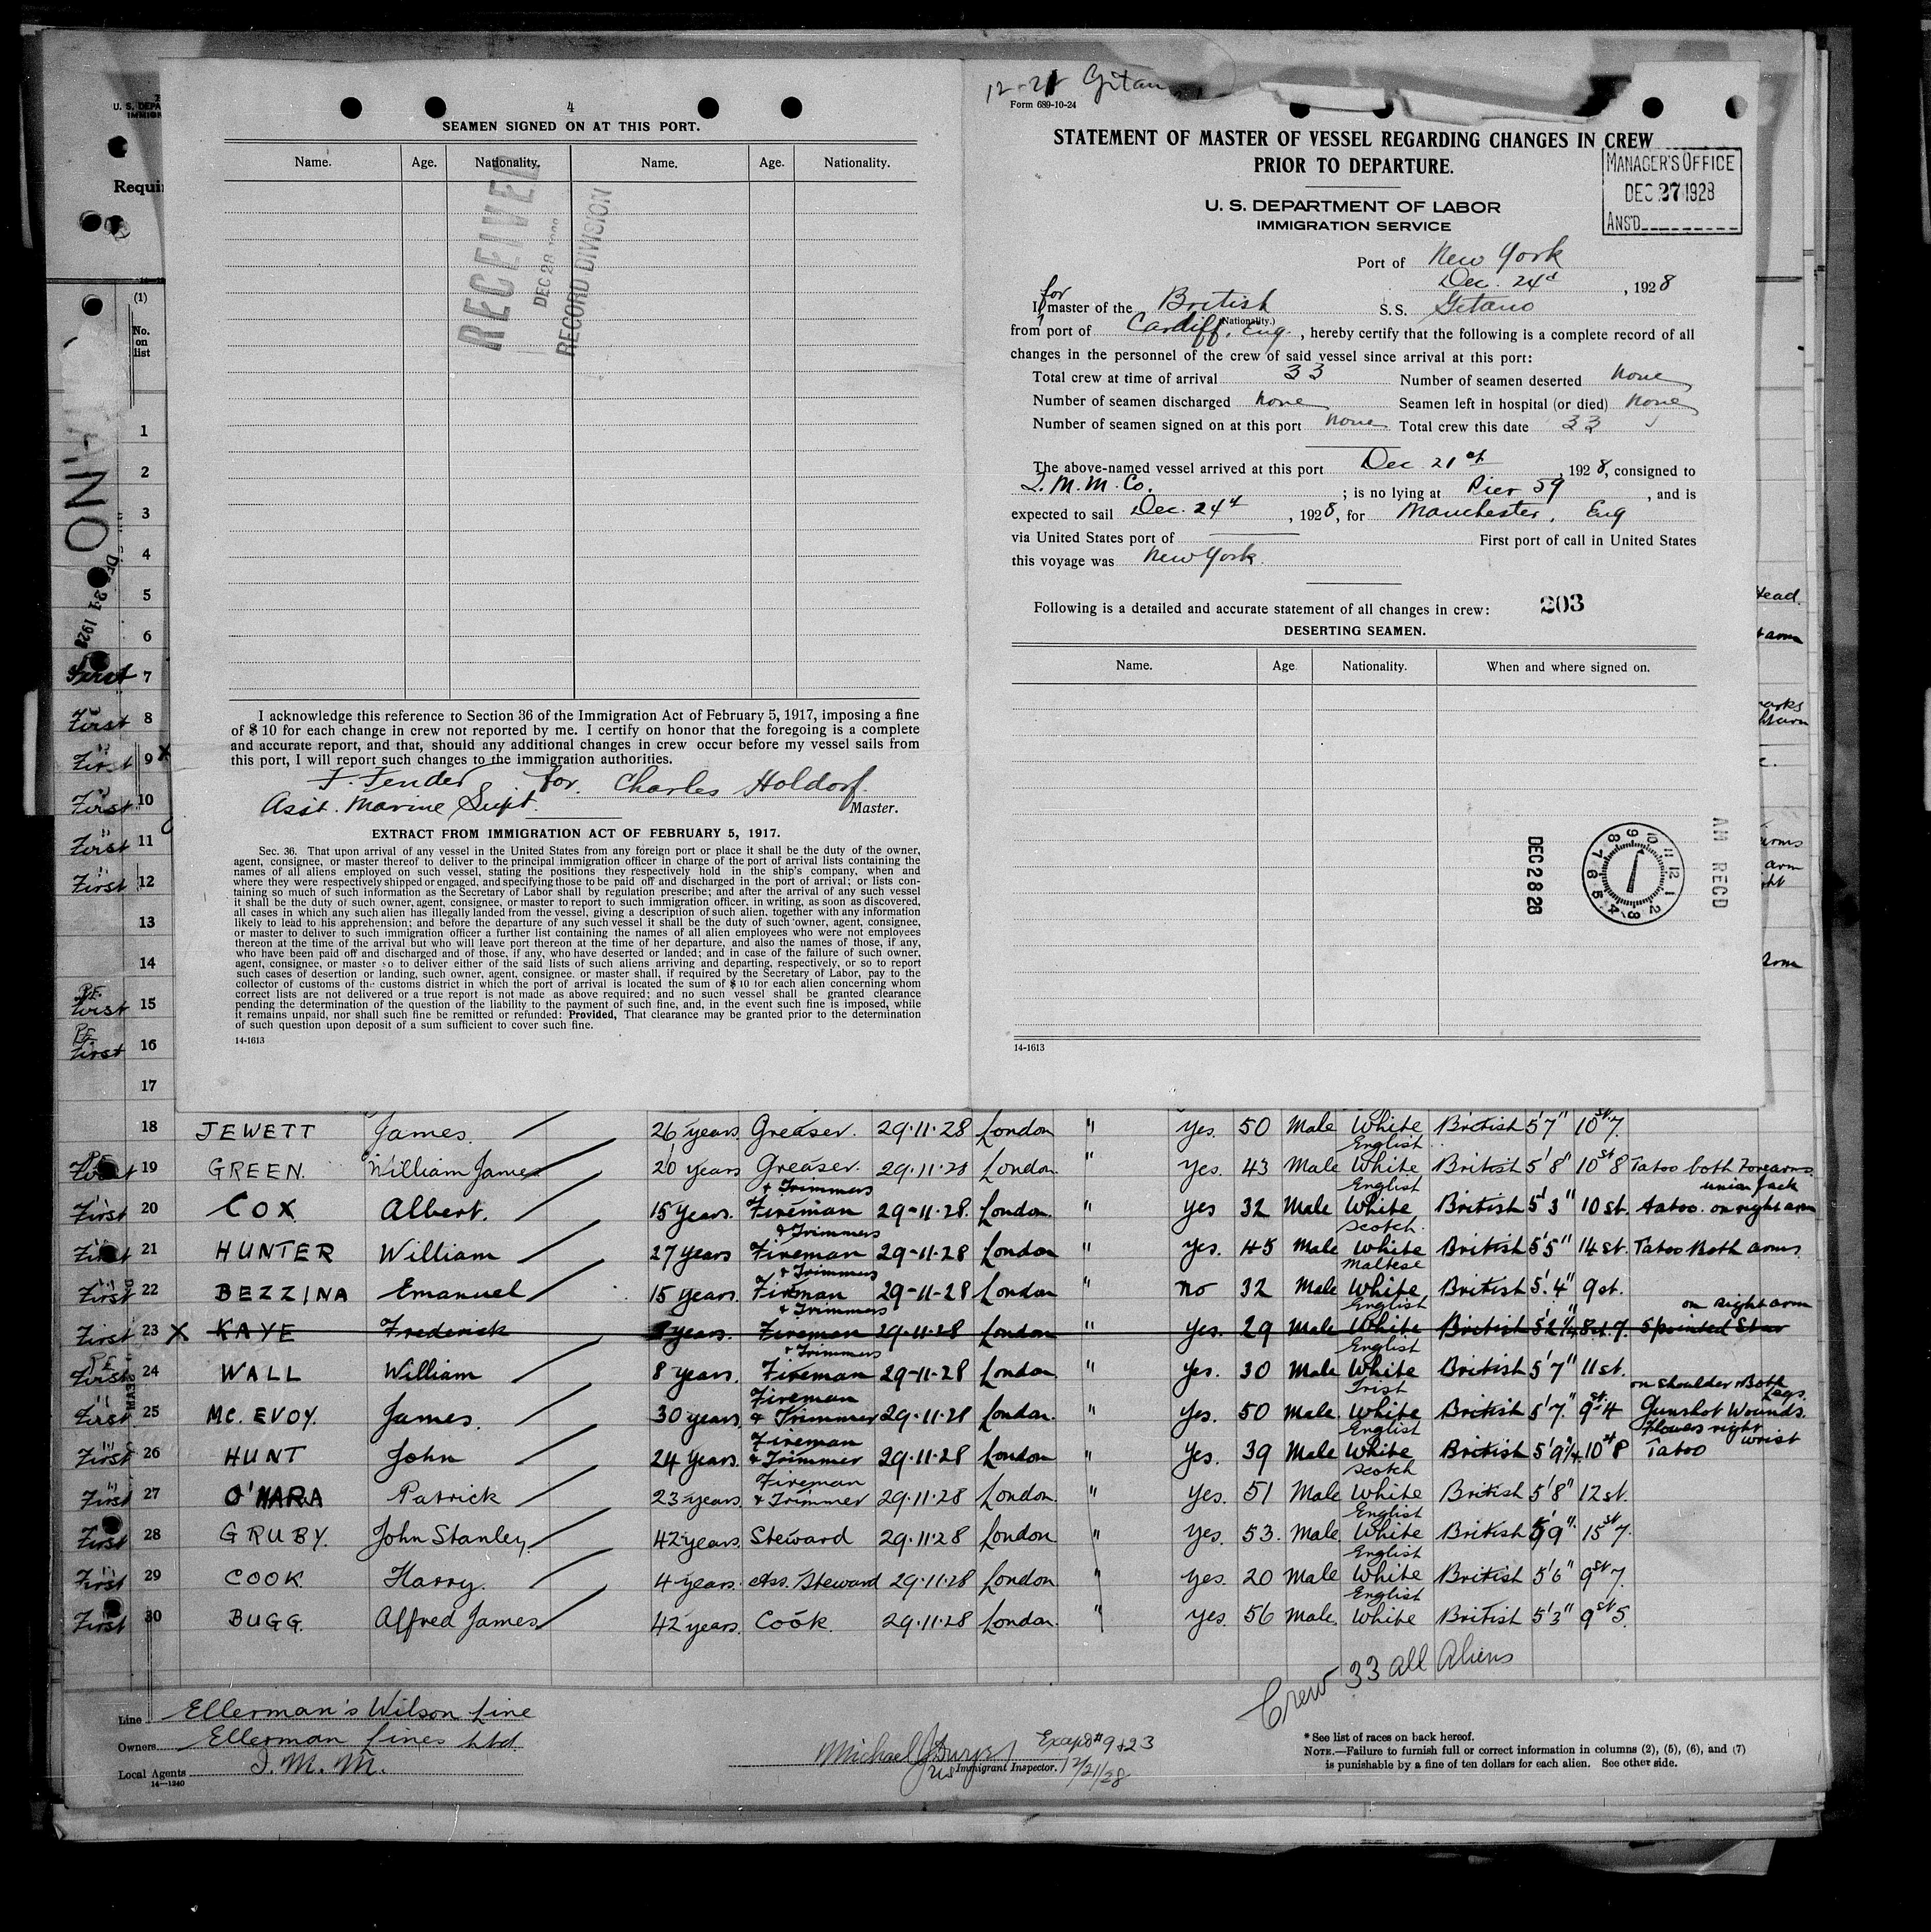 4
SEAMEN SIGNED ON AT THIS PORT.
Name. Age. Nationality. Name. Age. Nationality.
RECEIVED
DEC 28
RECORD DIVISION
I acknowledge this reference to Section 36 of the Immigration Act of February 5, 1917, imposing a fine
of $10 for each change in crew not reported by me. I certify on honor that the foregoing is a complete
and accurate report, and that, should any additional changes in crew occur before my vessel sails from
this port, I will report such changes to the immigration authorities.
F. Fender for Charles Holdorf
Asst. Marine Supt. Master.
EXTRACT FROM IMMIGRATION ACT OF FEBRUARY 5, 1917.
Sec. 36. That upon arrival of any vessel in the United States from any foreign port or place it shall be the duty of the owner,
agent, consignee, or master thereof to deliver to the principal immigration officer in charge of the port of arrival lists containing the
names of all aliens employed on such vessel, stating the positions they respectively hold in the ship's company, when and
where they were respectively shipped or engaged, and specifying those to be paid off and discharged in the port of arrival; or lists con-
taining so much of such information as the Secretary of Labor shall by regulation prescribe; and after the arrival of any such vessel
it shall be the duty of such owner, agent, consignee, or master to report to such immigration officer, in writing, as soon as discovered,
all cases in which any such alien has illegally landed from the vessel, giving a description of such alien, together with any information
likely to lead to his apprehension; and before the departure of any such vessel it shall be the duty of such owner, agent, consignee,
or master to deliver to such immigration officer a further list containing the names of all alien employees who were not employees
thereon at the time of the arrival but who will leave port thereon at the time of her departure, and also the names of those, if any,
who have been paid off and discharged and of those, if any, who have deserted or landed; and in case of the failure of such owner,
agent, consignee, or master so to deliver either of the said lists of such aliens arriving and departing, respectively, or so to report
such cases of desertion or landing, such owner, agent, consignee, or master shall, if required by the Secretary of Labor, pay to the
collector of customs of the customs district in which the port of arrival is located the sum of $10 for each alien concerning whom
correct lists are not delivered or a true report is not made as above required; and no such vessel shall be granted clearance
pending the determination of the question of the liability to the payment of such fine, and, in the event such fine is imposed, while
it remains unpaid, nor shall such fine be remitted or refunded: Provided, That clearance may be granted prior to the determination
of such question upon deposit of a sum sufficient to cover such fine.
14-1613
Form 689-10-24
STATEMENT OF MASTER OF VESSEL REGARDING CHANGES IN CREW
PRIOR TO DEPARTURE.
MANAGER'S OFFICE
DEC 27 1928
ANS'D
U. S. DEPARTMENT OF LABOR
IMMIGRATION SERVICE
Port of New York
Dec. 24th, 1928
for
I, master of the British S.S. Gitano
(Nationality.)
from port of Cardiff, Eng., hereby certify that the following is a complete record of all
changes in the personnel of the crew of said vessel since arrival at this port:
Total crew at time of arrival 33 Number of seamen deserted none
Number of seamen discharged none Seamen left in hospital (or died) none
Number of seamen signed on at this port none Total crew this date 33
The above-named vessel arrived at this port Dec 21st, 1928, consigned to
I.M.M. Co. ; is no lying at Pier 59, and is
expected to sail Dec. 24th, 1928, for Manchester, Eng
via United States port of First port of call in United States
this voyage was New York.
Following is a detailed and accurate statement of all changes in crew: 203
DESERTING SEAMEN.
Name. Age Nationality. When and where signed on.
DEC 28 28
AM RECD
14-1613
(1)
No. on list
1
2
3
4
5
6
First 7
First 8
First 9 X
First 10
First 11
First 12
13
14
First 15
First 16
17
18 JEWETT James. 26 years Greaser. 29.11.28 London " Yes. 50 Male White British 5'7" 10st 7.
First 19 GREEN. William James 20 years Greaser. 29.11.28 London " Yes. 43 Male English White British 5'8" 10st 8 Tatoo both Forearms
First 20 COX Albert. 15 years. Fireman & Trimmers 29-11-28. London. " Yes 32 Male English White British 5'3" 10 st. union Jack Tatoo. on right arm
First 21 HUNTER William 27 years Fireman & Trimmers 29-11-28 London " Yes. 45 Male Scotch White British 5'5" 14 st. Tatoo Both arms
First 22 BEZZINA Emanuel 15 years. Fireman & Trimmers 29-11-28 London " no 32 Male Maltese White British 5'.4" 9 st.
First 23 X KAYE Frederick years. Fireman & Trimmers 29.11.28 London " Yes. 29 Male English White British 5'2¼ 8st.7. on right arm 5 pointed Star
First 24 WALL William 8 years. Fireman & Trimmers 29-11-28 London " Yes. 30 Male English White British 5'7" 11 st.
First 25 Mc. EVOY. James. 30 years Fireman & Trimmer 29.11.28 London. " Yes. 50 Male. Irish White British 5'7." 9st 4 on shoulder & Both Legs. Gunshot Wounds.
First 26 HUNT John 24 years. Fireman & Trimmer 29.11.28 London " Yes. 39 Male English White British 5'9¼ 10st 8 Flowers right wrist Tatoo
First 27 O'MARA Patrick 23 years Fireman & Trimmer 29.11.28 London. " Yes. 51 Male Scotch White British 5'8" 12 st.
First 28 GRUBY. John Stanley. 42 years. Steward 29.11.28 London " Yes. 53. Male English White British 5'9". 15st 7.
First 29 COOK. Harry. 4 years. Ass. Steward 29.11.28 London " Yes. 20 Male English White British 5'6" 9st 7.
First 30 BUGG. Alfred James 42 years. Cook. 29.11.28 London. " Yes. 56 Male English White British 5'3" 9st 5.
Crew 33 all Aliens
Line Ellerman's Wilson Line
Owners Ellerman Lines Ltd.
Local Agents I. M. M.
14-1240
Immigrant Inspector. 12/21/28
* See list of races on back hereof.
NOTE.—Failure to furnish full or correct information in columns (2), (5), (6), and (7)
is punishable by a fine of ten dollars for each alien. See other side.